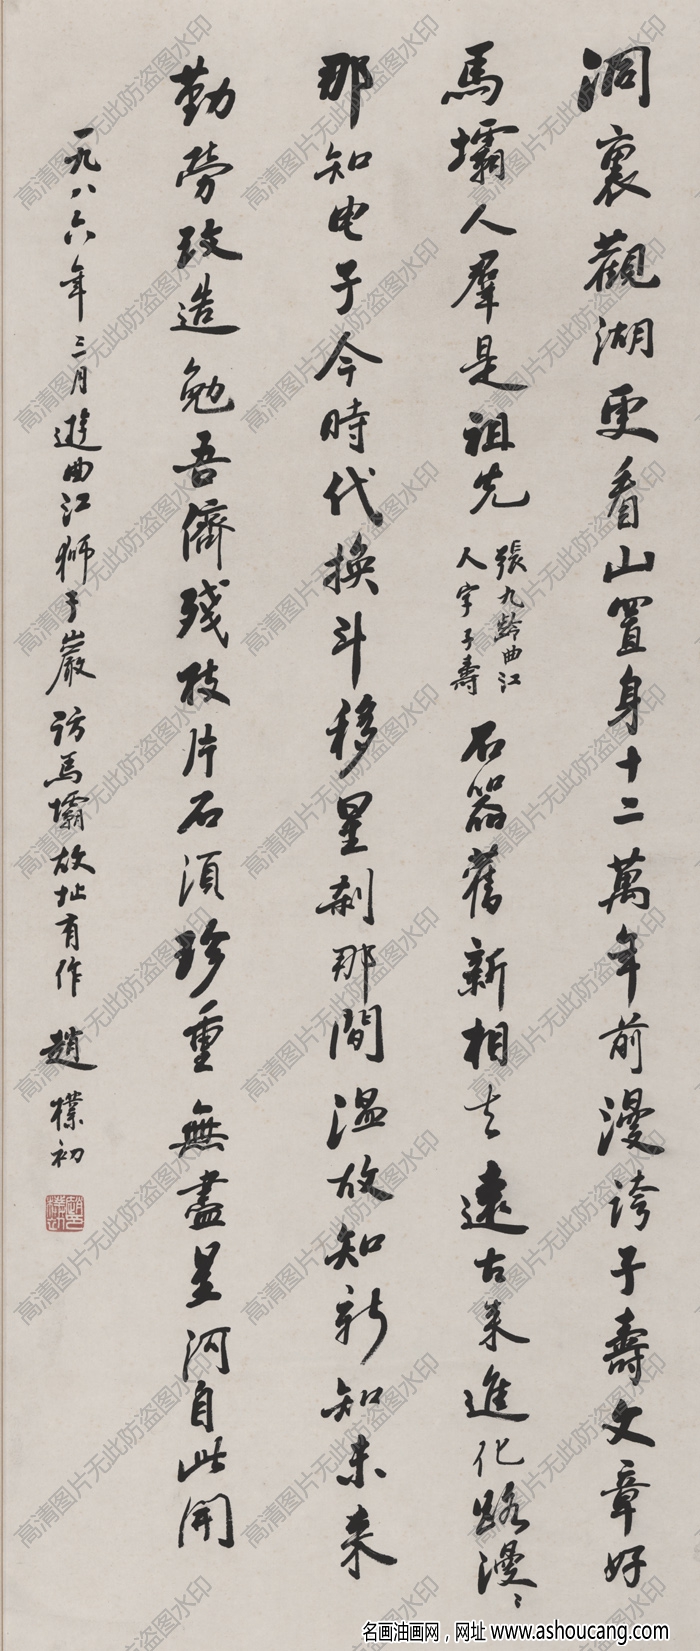 洞裏觀湖更看山置身十二萬年前漫誇子壽文章好
馬壩人羣是祖先
張九齡曲江
人字子壽
石器舊新相去遠古來進化路漫〻
那知电子今時代換斗移星刹那間溫故知新知未来
勤劳改造勉吾儕殘枝片石須珍重無盡星河自此開
一九八六年三月遊曲江獅子巖訪馬壩故址有作 趙樸初
趙樸初
高清图片无此防盗图水印
名画油画网，网址 www.ashoucang.com